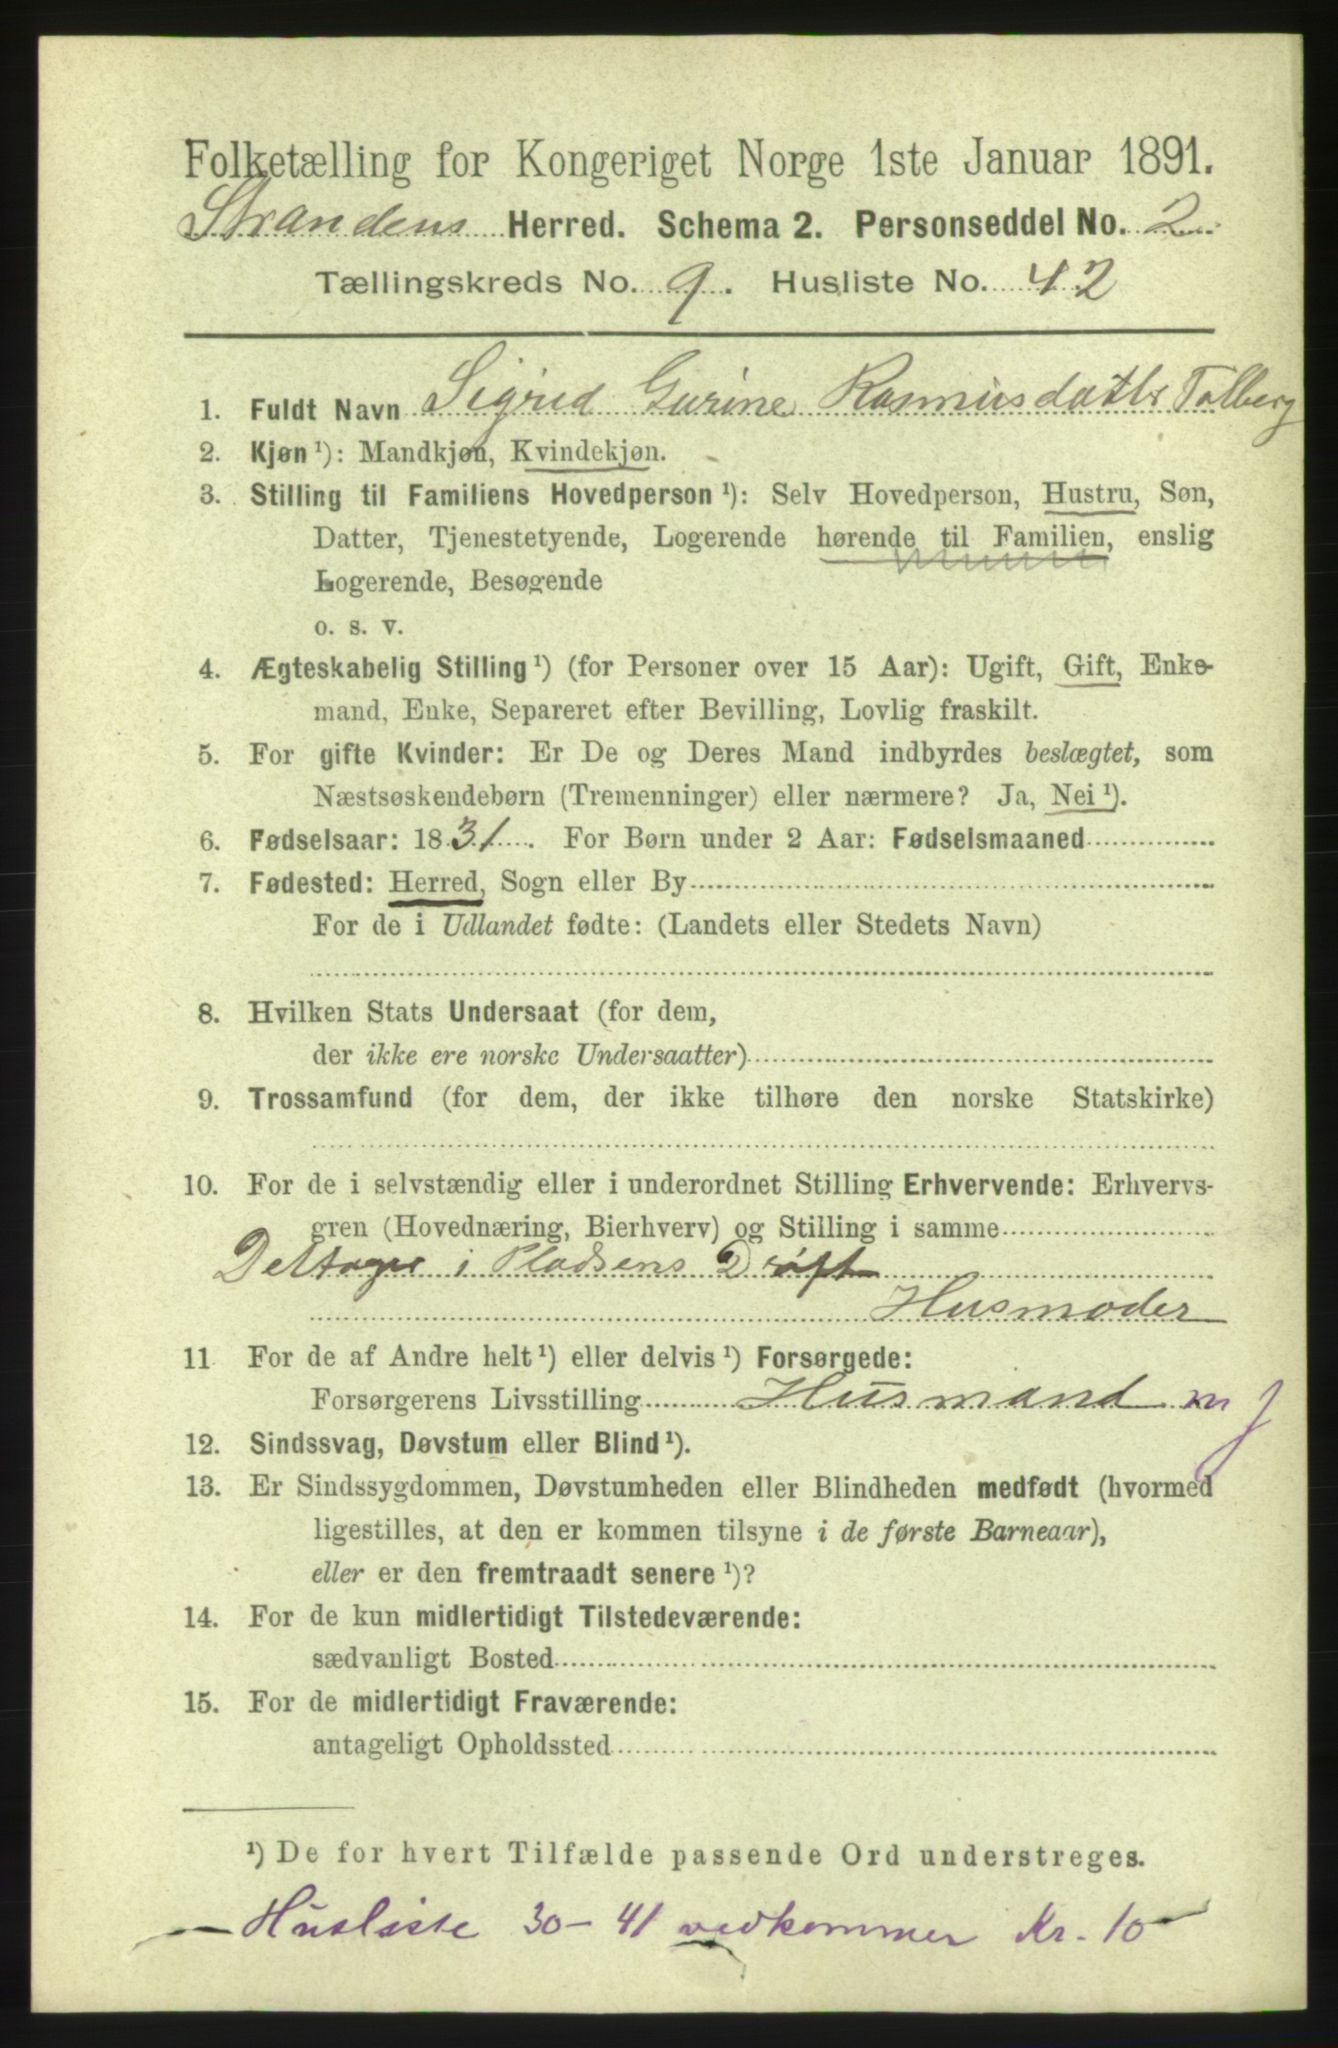 Folketælling for Kongeriget Norge 1ste Januar 1891.
Strandens Herred. Schema 2. Personseddel No. 2
Tællingskreds No. 9. Husliste No. 42
1. Fuldt Navn Sigrid Gurine Rasmusdatter Talberg
2. Kjøn ¹): Mandkjøn, Kvindekjøn.
3. Stilling til Familiens Hovedperson ¹): Selv Hovedperson, Hustru, Søn,
Datter, Tjenestetyende, Logerende hørende til Familien, enslig
Logerende, Besøgende
o. s. v.
4. Ægteskabelig Stilling ¹) (for Personer over 15 Aar): Ugift, Gift, Enke-
mand, Enke, Separeret efter Bevilling, Lovlig fraskilt.
5. For gifte Kvinder: Er De og Deres Mand indbyrdes beslægtet, som
Næstsøskendebørn (Tremenninger) eller nærmere? Ja, Nei ¹).
6. Fødselsaar: 1831. For Børn under 2 Aar: Fødselsmaaned
7. Fødested: Herred, Sogn eller By
For de i Udlandet fødte: (Landets eller Stedets Navn)
8. Hvilken Stats Undersaat (for dem,
der ikke ere norske Undersaatter)
9. Trossamfund (for dem, der ikke tilhøre den norske Statskirke)
10. For de i selvstændig eller i underordnet Stilling Erhvervende: Erhvervs-
gren (Hovednæring, Bierhverv) og Stilling i samme
Deltager i Pladsens Drift
Husmoder
11 For de af Andre helt ¹) eller delvis ¹) Forsørgede:
Forsørgerens Livsstilling Husmand m J
12. Sindssvag, Døvstum eller Blind ¹).
13. Er Sindssygdommen, Døvstumheden eller Blindheden medfødt (hvormed
ligestilles, at den er kommen tilsyne i de første Barneaar),
eller er den fremtraadt senere ¹)?
14. For de kun midlertidigt Tilstedeværende:
sædvanligt Bosted
15. For de midlertidigt Fraværende:
antageligt Opholdssted
¹) De for hvert Tilfælde passende Ord understreges.
Husliste 30-41 vedkommer Kr. 10